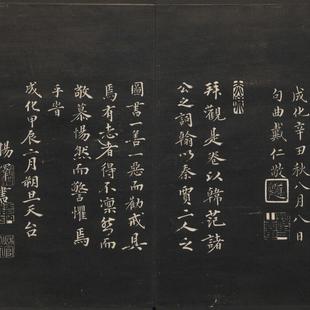 成化辛丑秋八月八日
句曲戴仁敬
拜觀是卷以韓范諸
公之詞翰以秦賈二人之
圖書一善一惡而勸戒具
焉有志者得不凛然而
敬慕惕然而警懼焉
乎 昔
成化甲辰八月朔旦天台
楊